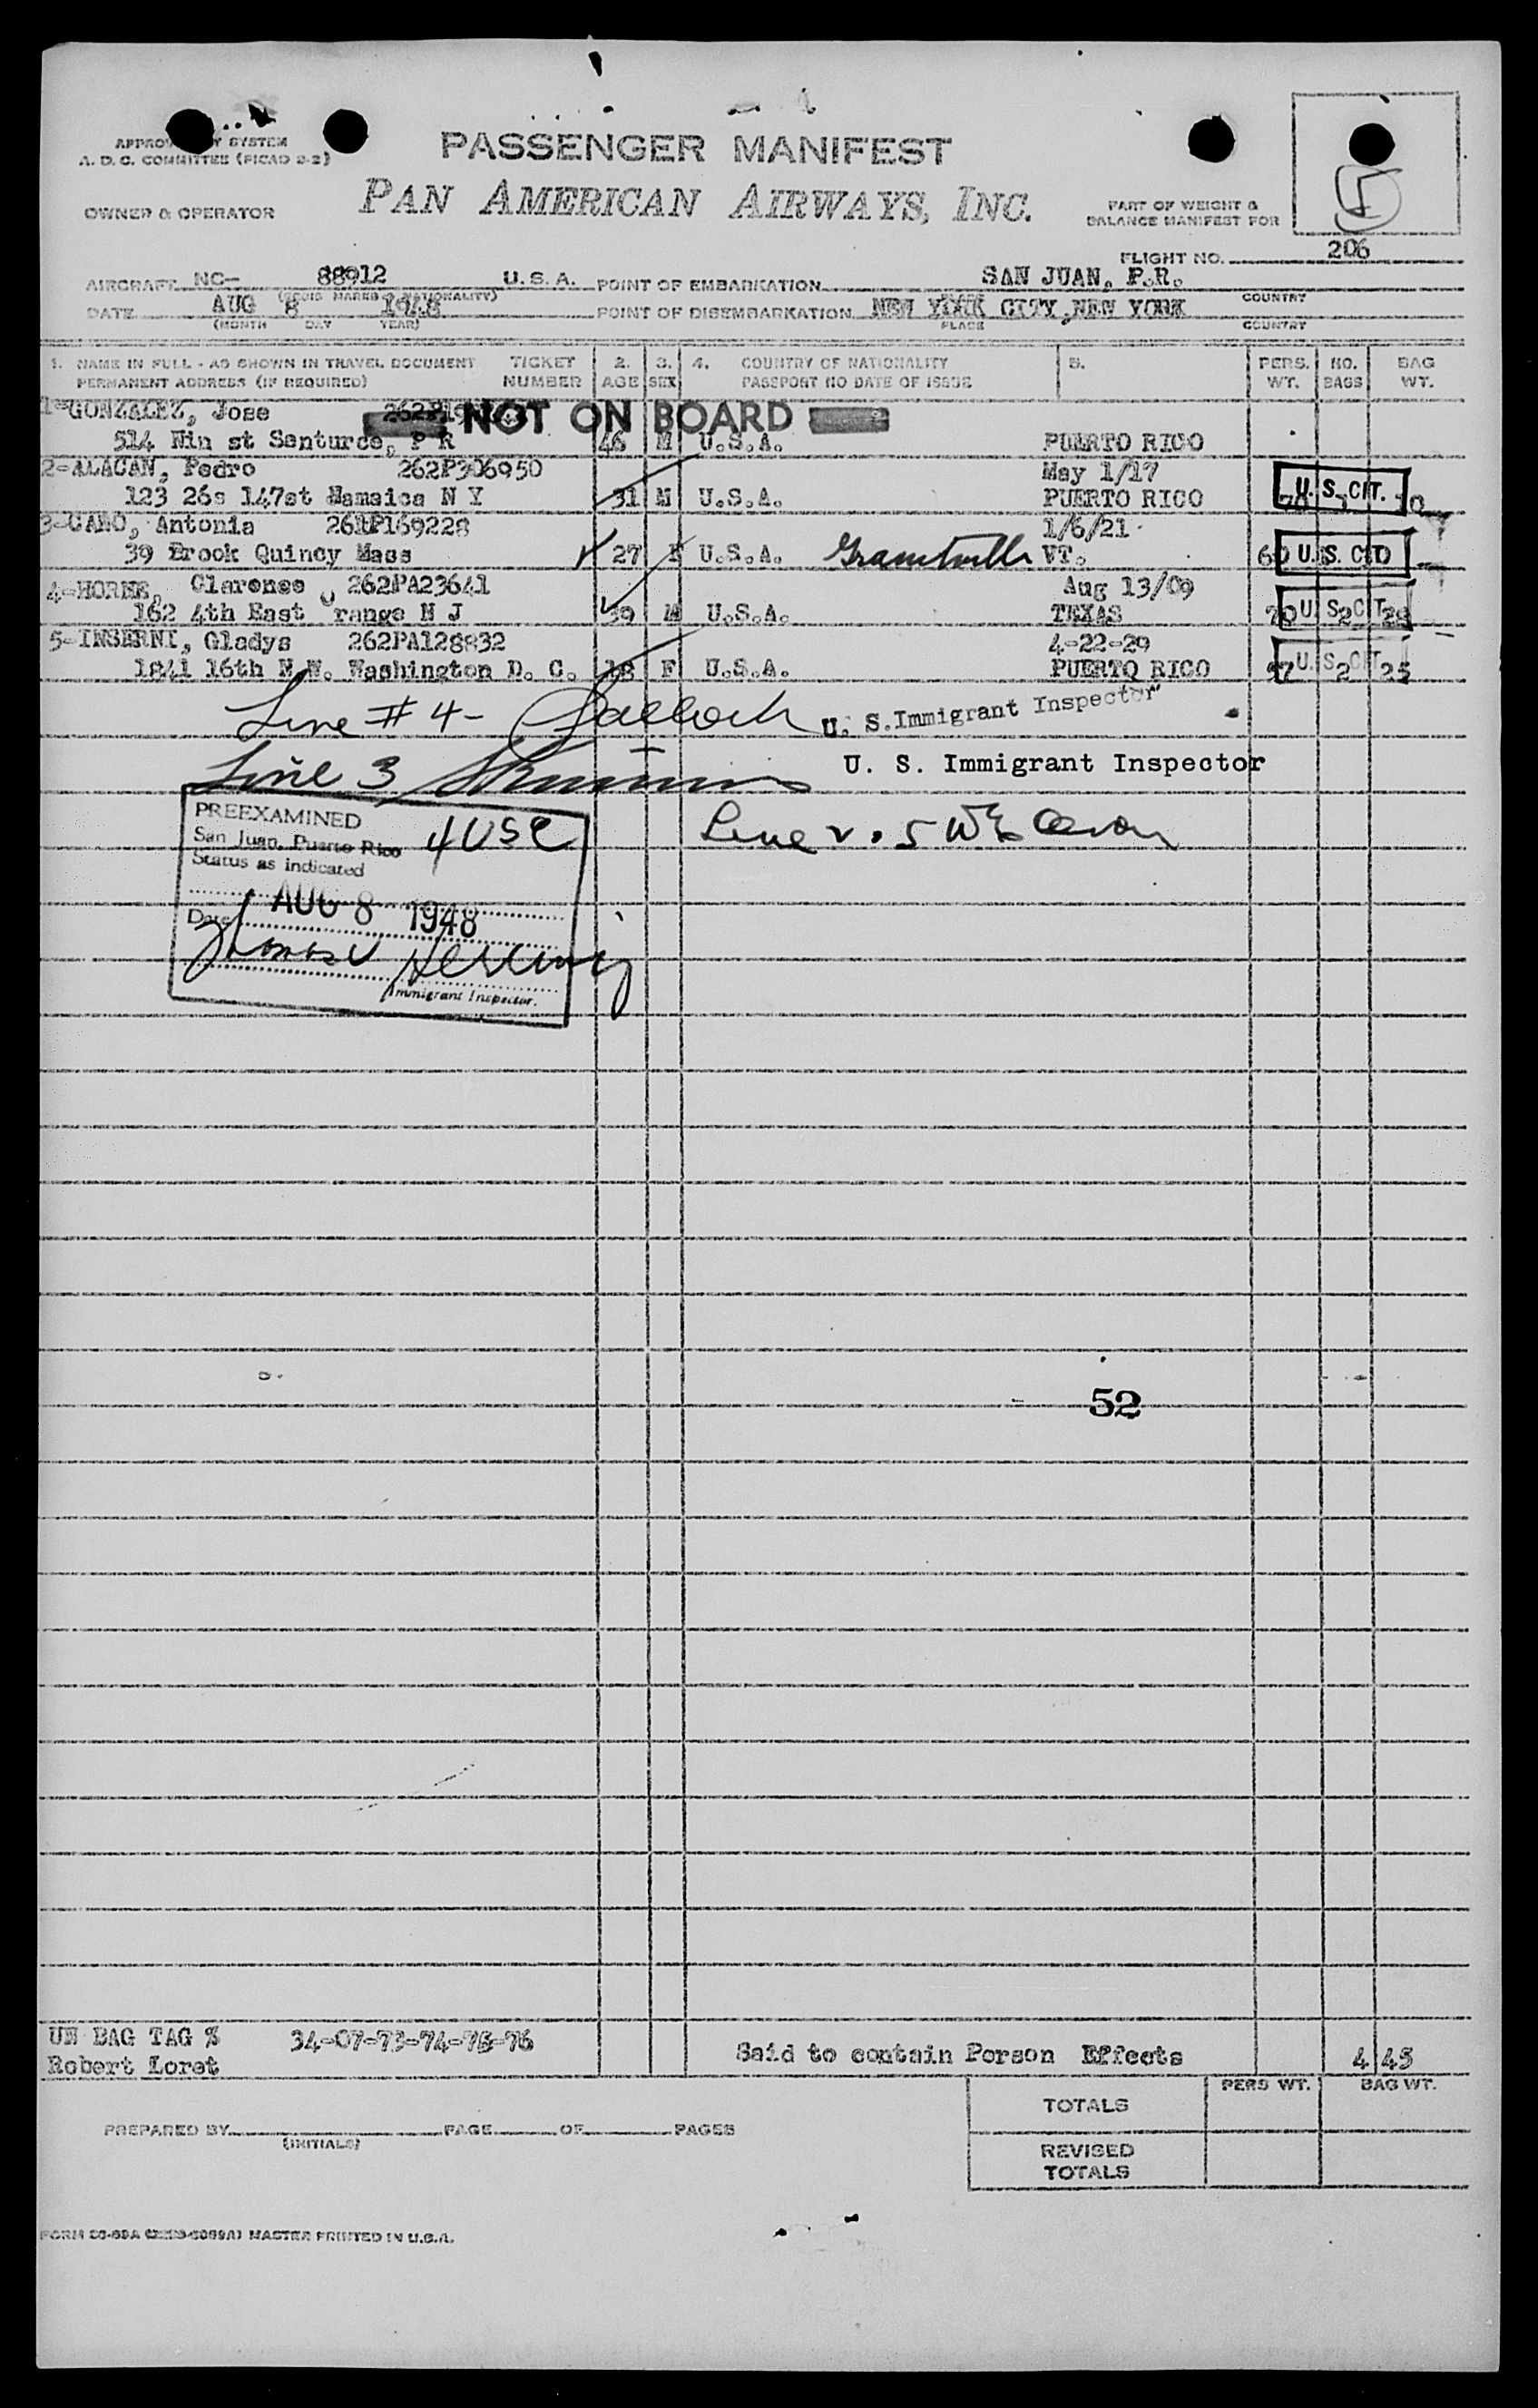 APPROV Y SYSTEM
A. D. C. COMMITTEE (PICAO 2-2)
PASSENGER MANIFEST
OWNER & OPERATOR
PAN AMERICAN AIRWAYS, INC.
PART OF WEIGHT &
BALANCE MANIFEST FOR
5
FLIGHT NO. 206
AIRCRAFT NC- 88912 U. S. A. POINT OF EMBARKATION SAN JUAN, P.R.
(REGIS MARKS & NATIONALITY) COUNTRY
DATE AUG 8 1948 POINT OF DISEMBARKATION NEW YORK CITY, NEW YORK
(MONTH DAY YEAR) PLACE COUNTRY
1. NAME IN FULL - AS SHOWN IN TRAVEL DOCUMENT TICKET 2. 3. 4. COUNTRY OF NATIONALITY 5. PERS. NO. BAG
PERMANENT ADDRESS (IF REQUIRED) NUMBER AGE SEX PASSPORT NO DATE OF ISSUE WT. BAGS WT.
1-GONZALEZ, Jose NOT ON BOARD
514 Nin st Santurce, P R 46 M U.S.A. PUERTO RICO
2-ALACAN, Pedro 262P306950 May 1/17
123 26s 147st Jamaica N Y 31 M U.S.A. PUERTO RICO U. S. CIT.
3-CANO, Antonia 261P169228 1/6/21
39 Brook Quincy Mass 27 F U.S.A. VT. U. S. CIT
4-HORNE, Clarence 262PA23641 Aug 13/09
162 4th East Orange N J 39 M U.S.A. TEXAS 70 U S 2 CIT 28
5-INSERNI, Gladys 262PA128832 4-22-29
1841 16th N.W. Washington D. C. 18 F U.S.A. PUERTO RICO 57 U S 2 CIT 25
Line # 4 - U. S. Immigrant Inspector
Line 3 U. S. Immigrant Inspector
PREEXAMINED
San Juan, Puerto Rico 4 USC
Status as indicated
Line 2 . 5
AUG 8 1948
Date
Immigrant Inspector.
52
UN BAG TAG % 34-07-73-74-75-76
Robert Loret Said to contain Person Effects 4 45
PERS WT. BAG WT.
TOTALS
PREPARED BY PAGE OF PAGES
(INITIALS)
REVISED
TOTALS
MASTER PRINTED IN U.S.A.